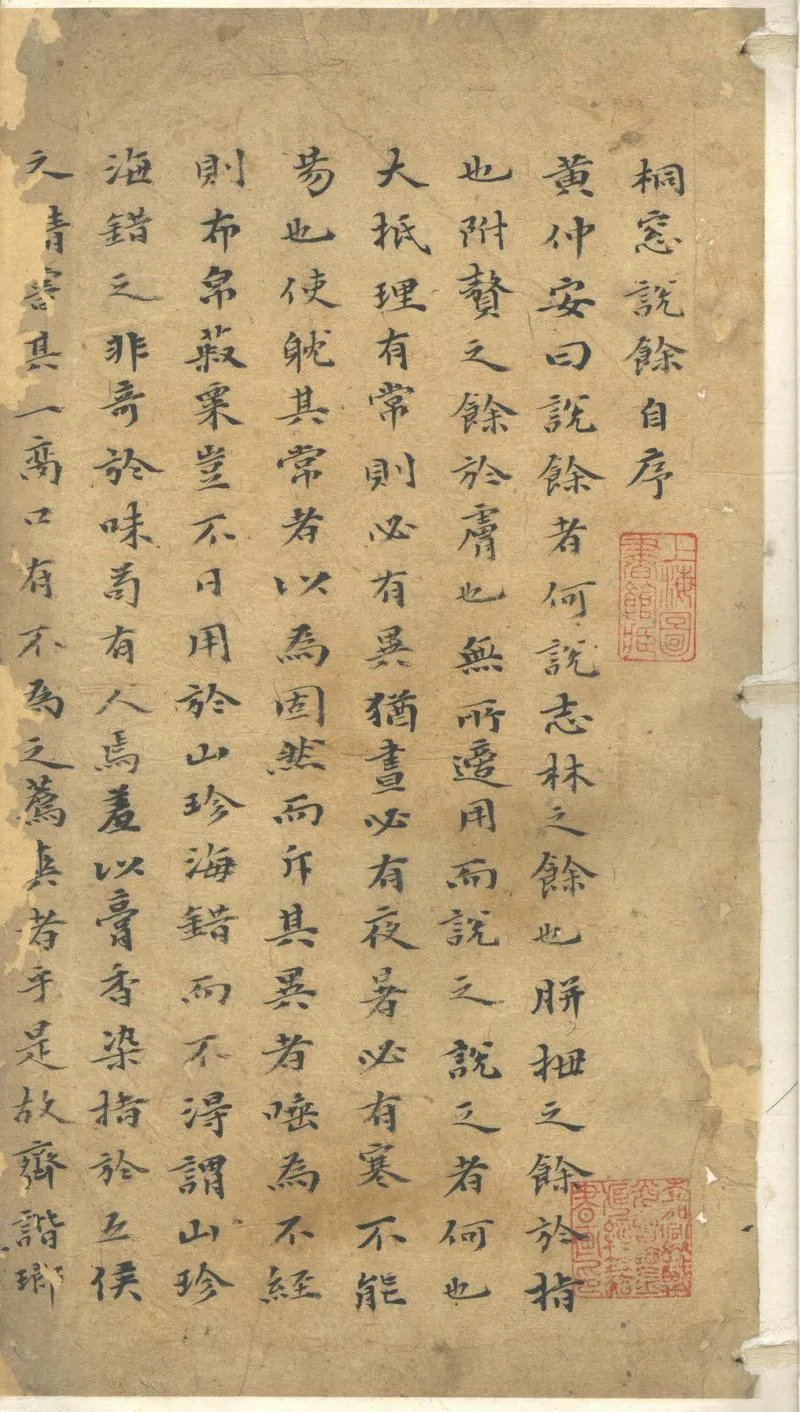 桐窓說餘自序
黃仲安曰說餘者何說志林之餘也胼拇之餘於指
也附贅之餘於膚也無所適用而說之說之者何也
大抵理有常則必有異猶晝必有夜暑必有寒不能
昜也使眈其常者以為固然而斥其異者唾為不經
則布帛菽粟豈不日用於山珍海錯而不得謂山珍
海錯之非奇於味苟有人焉羞以膏香染指於五侯
之鯖嘗其一臠口有不為之薦爽者乎是故齊諧瑯
上海圖書館藏